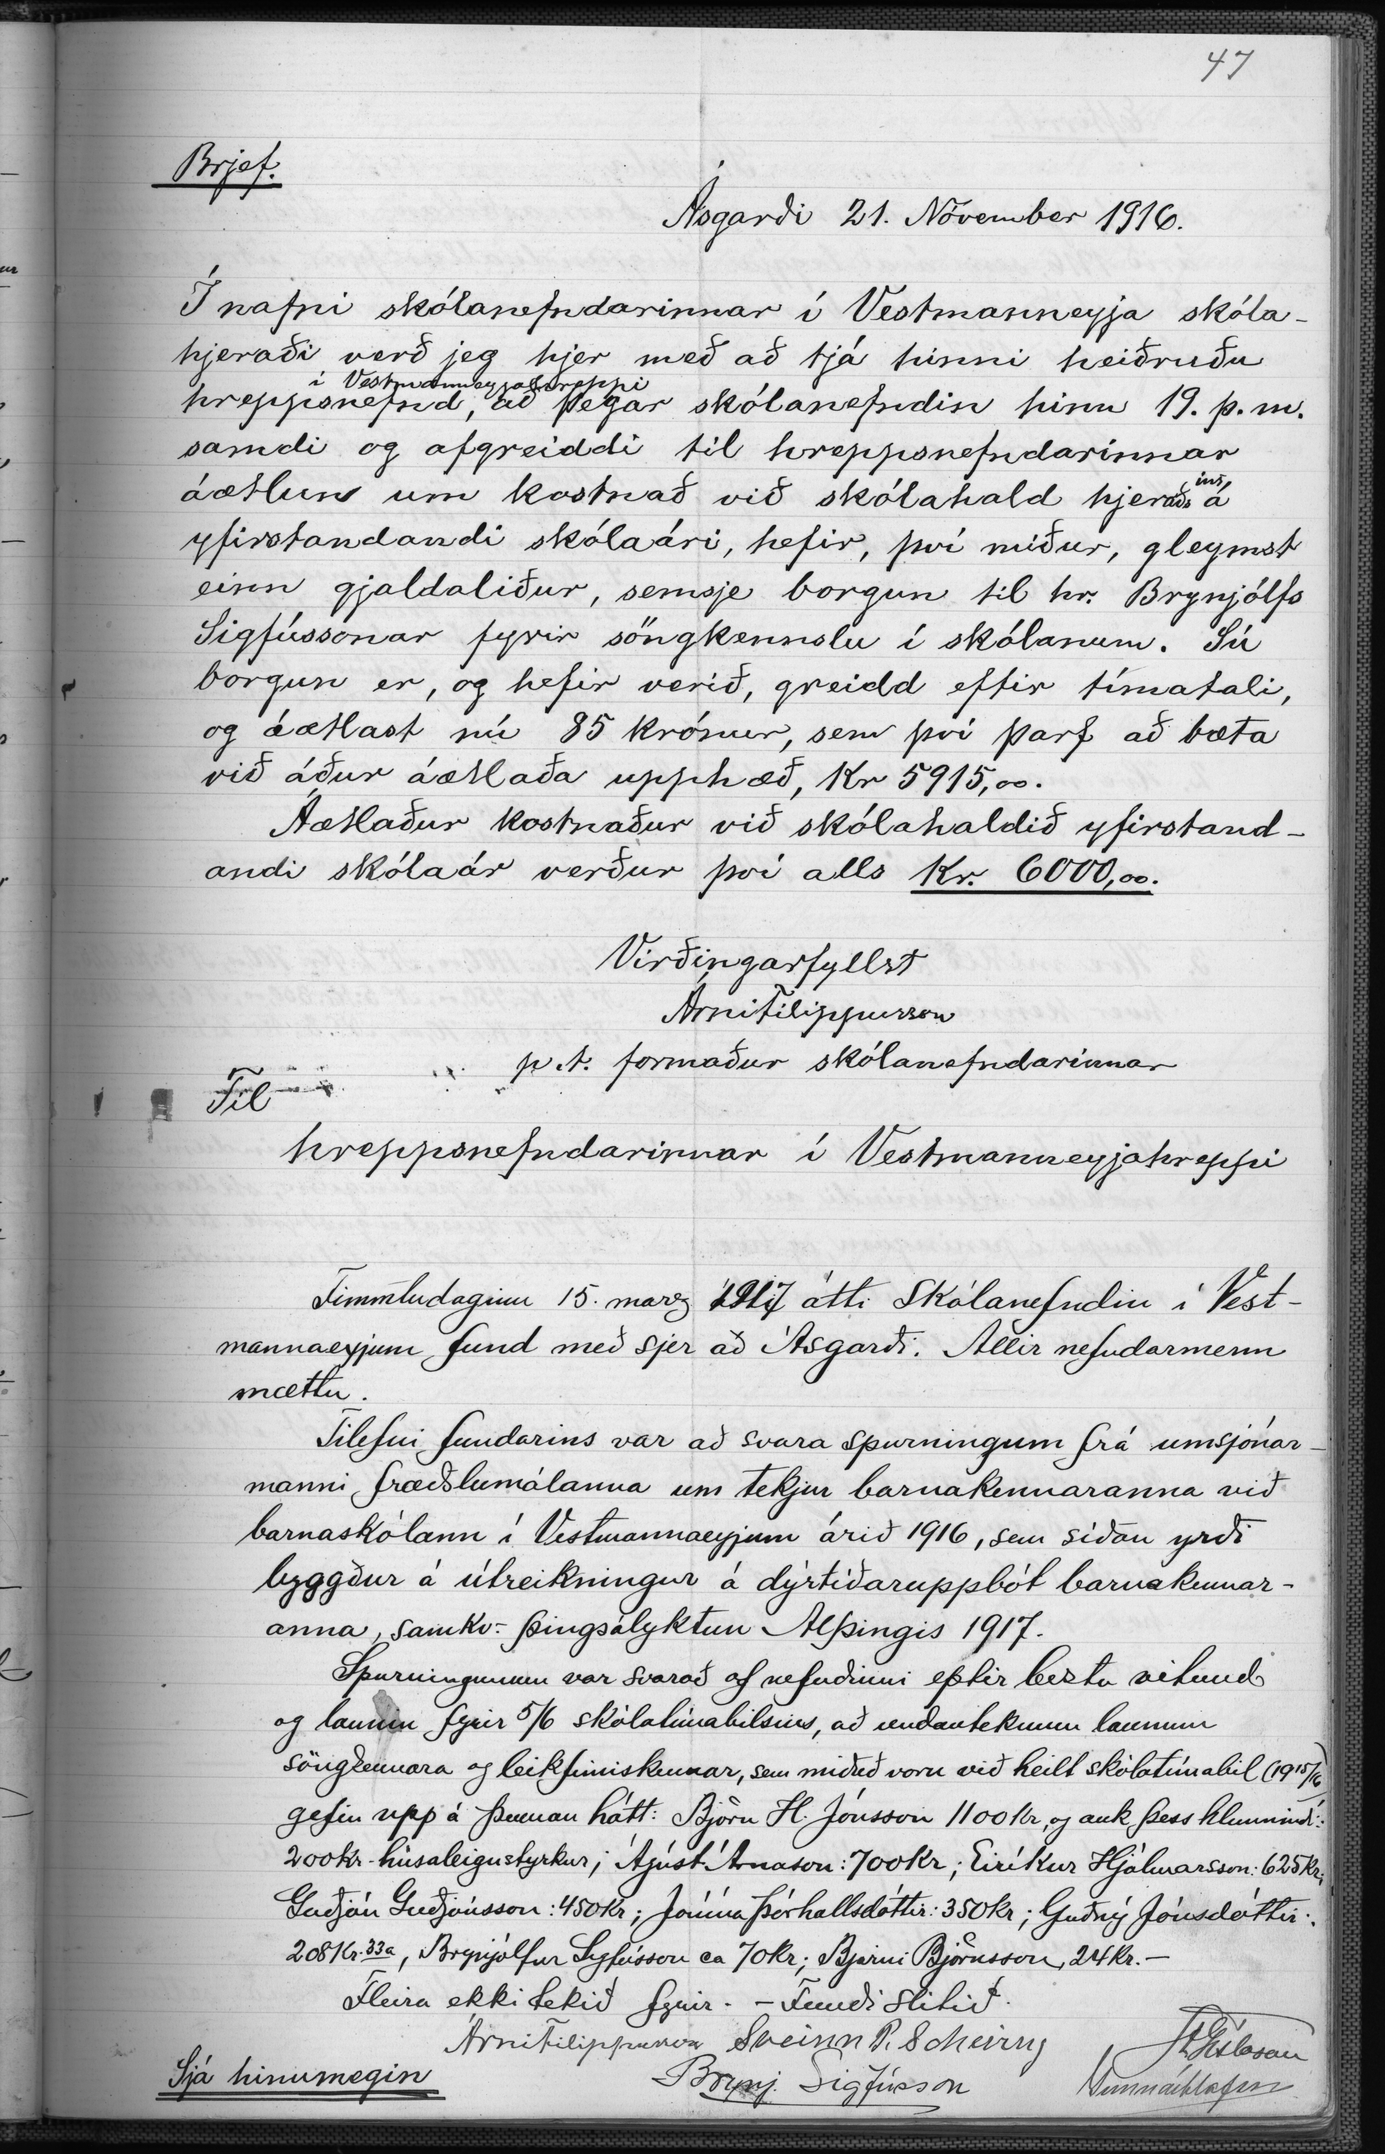 47
Brjef.
Ásgarði 21. November 1916.
Í nafni skólanefndarinnar í Vestmanneyja skóla-
hjeraði verð jeg hjer með að tjá hinni heiðruðu
í Vestmanneyjahreppi
hreppsnefnd, að þegar skólanefndin hinn 19. þ. m.
samdi og afgreiddi til hreppsnefndarinnar
áætlun um kostnað við skólahald hjeraðsins á
yfirstandandi skólaári, hefir, því miður, gleymst
einn gjaldaliður, semsje borgun til hr. Brynjólfs
Sigfússonar fyrir söngkennslu í skólanum. Sú
borgun er, og hefir verið, greidd eftir tímatali,
og áætlast nú 85 krónur, sem því þarf að bæta
við áður áætlaða upphæð, Kr 5915,00.
Áætlaður kostnaður við skólahaldið yfirstand-
andi skólaár verður því alls Kr. 6000,00.
Virðingarfyllst
Árni Filippusson
p.t. formaður skólanefndarinnar
Til
hreppsnefndarinnar í Vestmanneyjahreppi
Fimmtudaginn 15. marz 1917 átti Skólanefndin í Vest-
mannaeyjum fund með sjer að Ásgarði. Allir nefndarmenn
mættu.
Tilefni fundarins var að svara spurningum frá umsjónar-
manni fræðslumálanna um tekjur barnakennaranna við
barnaskólann í Vestmannaeyjum árið 1916, sem síðan yrði
byggður á útreikningur á dýrtíðaruppbót barnakennar-
anna, samkv. þingsályktun Alþingis 1917.
Spurningunum var svarað af nefndinni eptir beztu vitund
og launin fyrir 5/6 skólatímabilsins, að undanteknum launum
söngkennara og leikfimiskennar, sem miðuð voru við heilt skólatímabil (1915/16)
gefin upp á þennan hátt: Björn H. Jónsson 1100 kr, og auk þess hlunnindi:
200 kr húsaleigustyrkur; Ágúst Árnason: 700 kr; Eiríkur Hjálmarsson: 625 kr;
Guðjón Guðjónsson: 450 kr; Jónína Þórhallsdóttir: 350 kr; Guðný Jónsdóttir:
208 kr. 33 a, Brynjólfur Sigfússon ca 70 kr; Bjarni Björnsson, 24 kr. -
Fleira ekki tekið fyrir. - Fundi slitið.
Árni Filippusson Sveinn P. Scheving
Brynj. Sigfússon
Gunnar Ólafsson
Sjá hinumegin